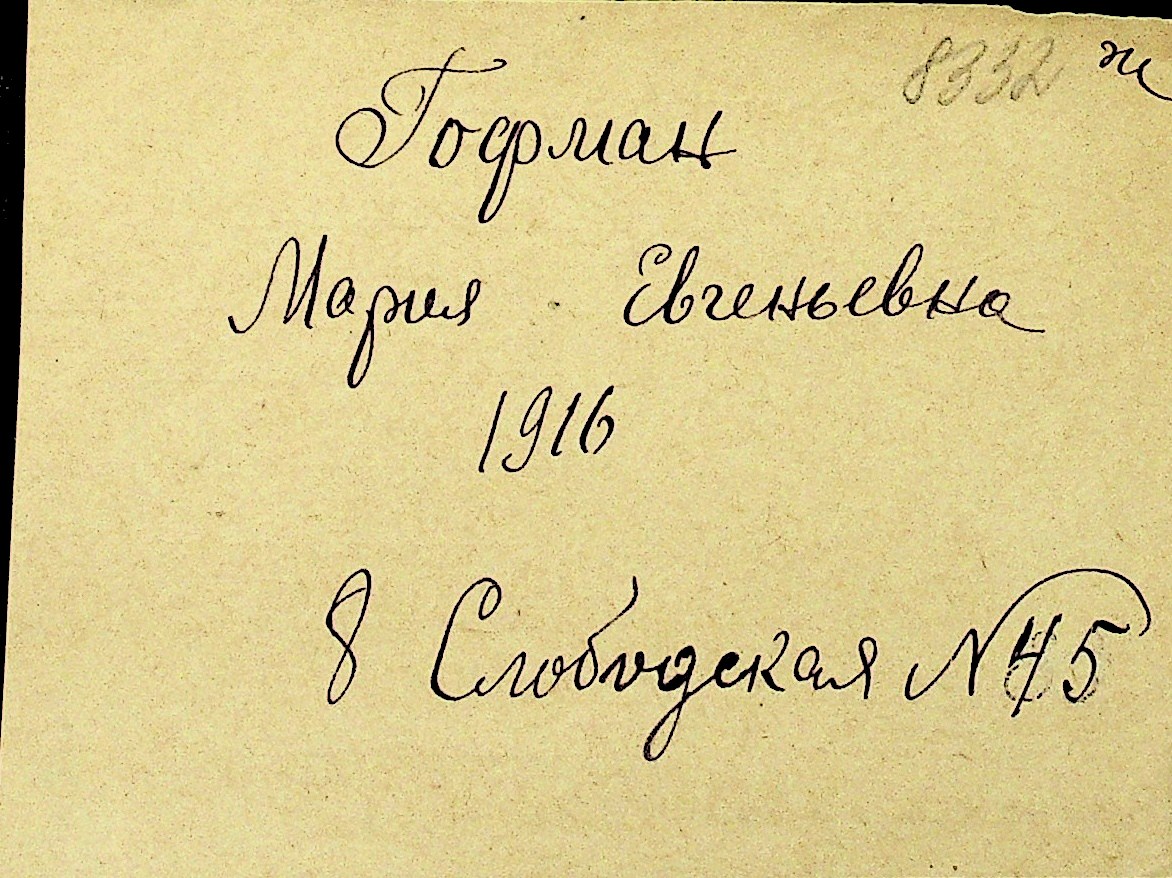 8332 ж
Гофман
Мария Евгеньевна
1916
8 Слободская N 45